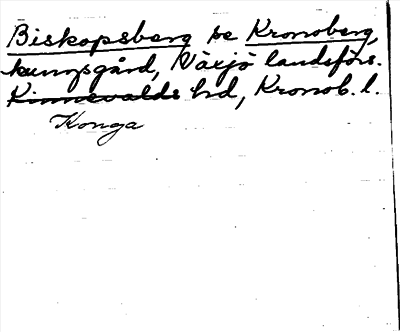 Biskopsberg se Kronoberg,
kungsgård, Växjö landsförs.
Kinnevalds hd, Kronob. l.
Konga